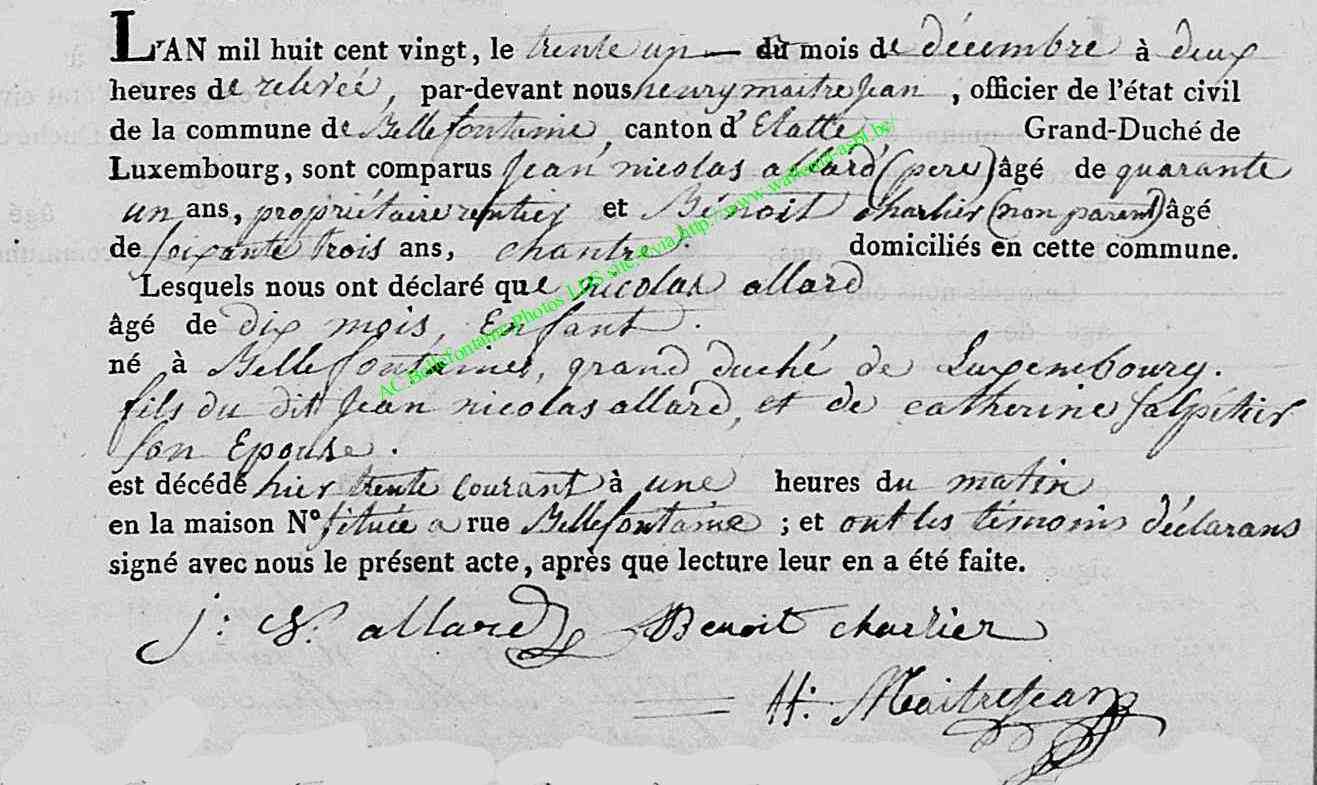 L'AN mil huit cent vingt, le trente un — du mois de décembre à deux
heures de relevée, par-devant nous henry maitrejean, officier de l'état civil
de la commune de Bellefontaine, canton d'Etalle, Grand-Duché de
Luxembourg, sont comparus Jean nicolas allard (pere) âgé de quarante
un ans, propriétaire rentier et Bénoit charlier (non parent) âgé
de soixante trois ans, chantre. domiciliés en cette commune.
Lesquels nous ont déclaré que nicolas allard
âgé de dix mois, Enfant.
né à Bellefontaine, grand duché de Luxembourg.
fils du dit Jean nicolas allard, et de catherine salpêtier
son Epouse.
est décédé hier trente courant à une heures du matin
en la maison N° située a rue Bellefontaine ; et ont les témoins déclarans
signé avec nous le présent acte, après que lecture leur en a été faite.
j: N. allard Benoit charlier
H: Maitrejean
AC Bellefontaine Photos LDS site via http://www.watermael-asbl.be/